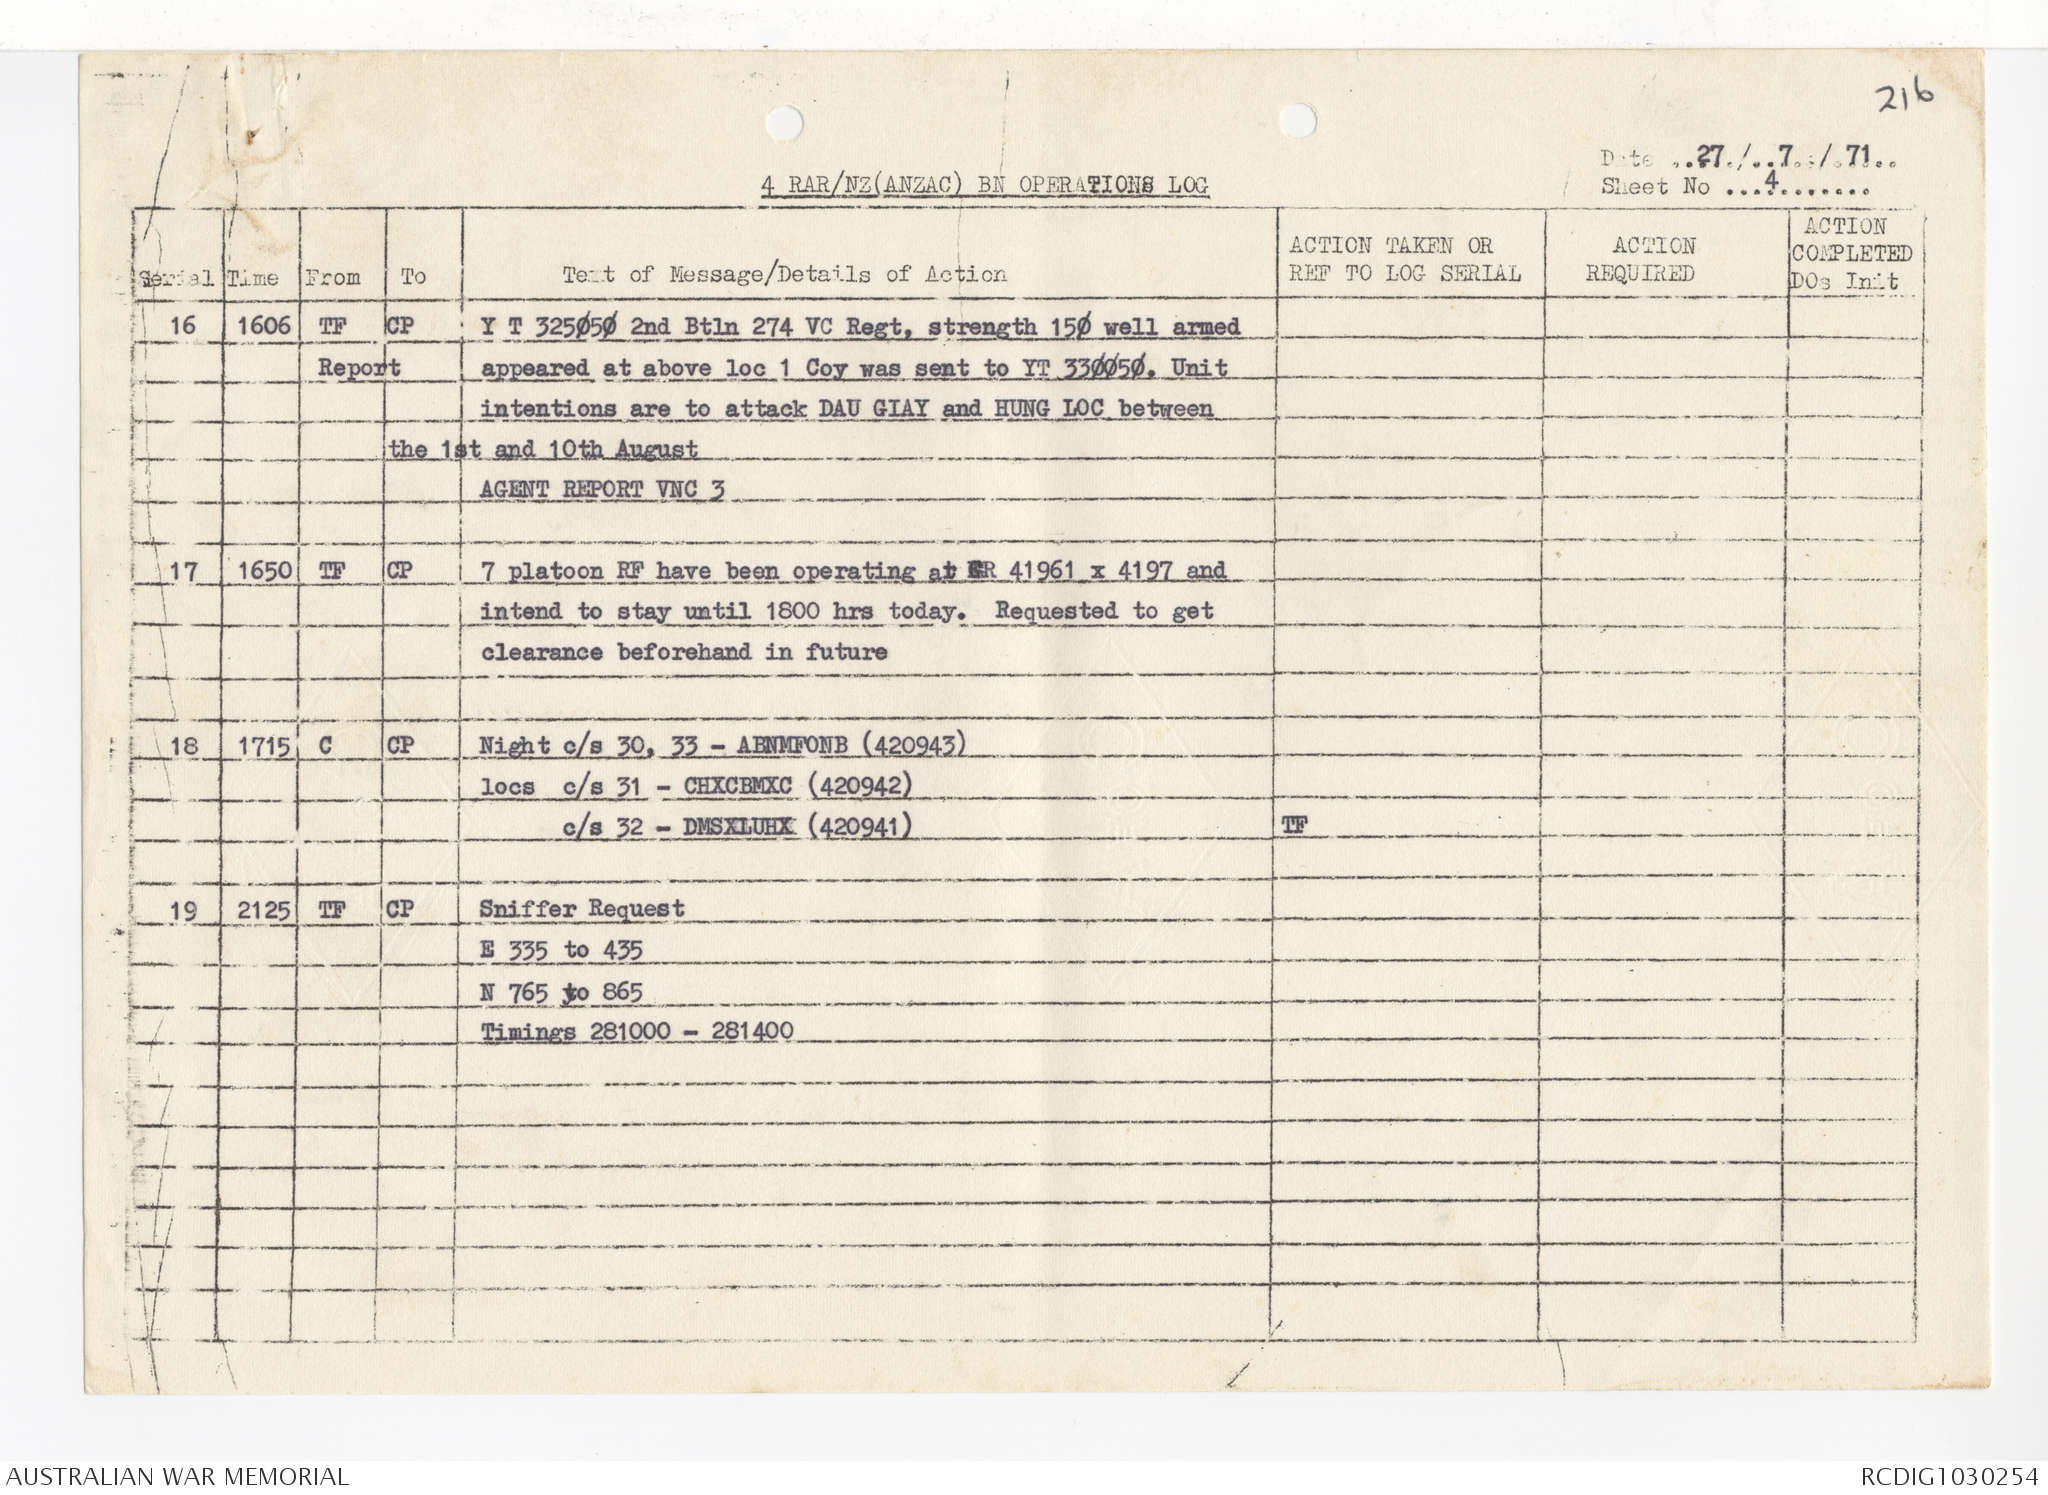 216
Date ..27./..7../.71...
Sheet No ....4...........
4 RAR/NZ(ANZAC) BN OPERATIONS LOG
Serial Time From To Text of Message/Details of Action ACTION TAKEN OR REF TO LOG SERIAL ACTION REQUIRED ACTION COMPLETED DOs Init
16 1606 TF CP Y T 325050 2nd Btln 274 VC Regt, strength 150 well armed
Report appeared at above loc 1 Coy was sent to YT 330050. Unit
intentions are to attack DAU GIAY and HUNG LOC between
the 1st and 10th August
AGENT REPORT VNC 3
17 1650 TF CP 7 platoon RF have been operating at GR 41961 x 4197 and
intend to stay until 1800 hrs today. Requested to get
clearance beforehand in future
18 1715 C CP Night c/s 30, 33 - ABNMFONB (420943)
locs c/s 31 - CHXCBMXC (420942)
c/s 32 - DMSXLUHX (420941) TF
19 2125 TF CP Sniffer Request
E 335 to 435
N 765 to 865
Timings 281000 - 281400
AUSTRALIAN WAR MEMORIAL
RCDIG1030254